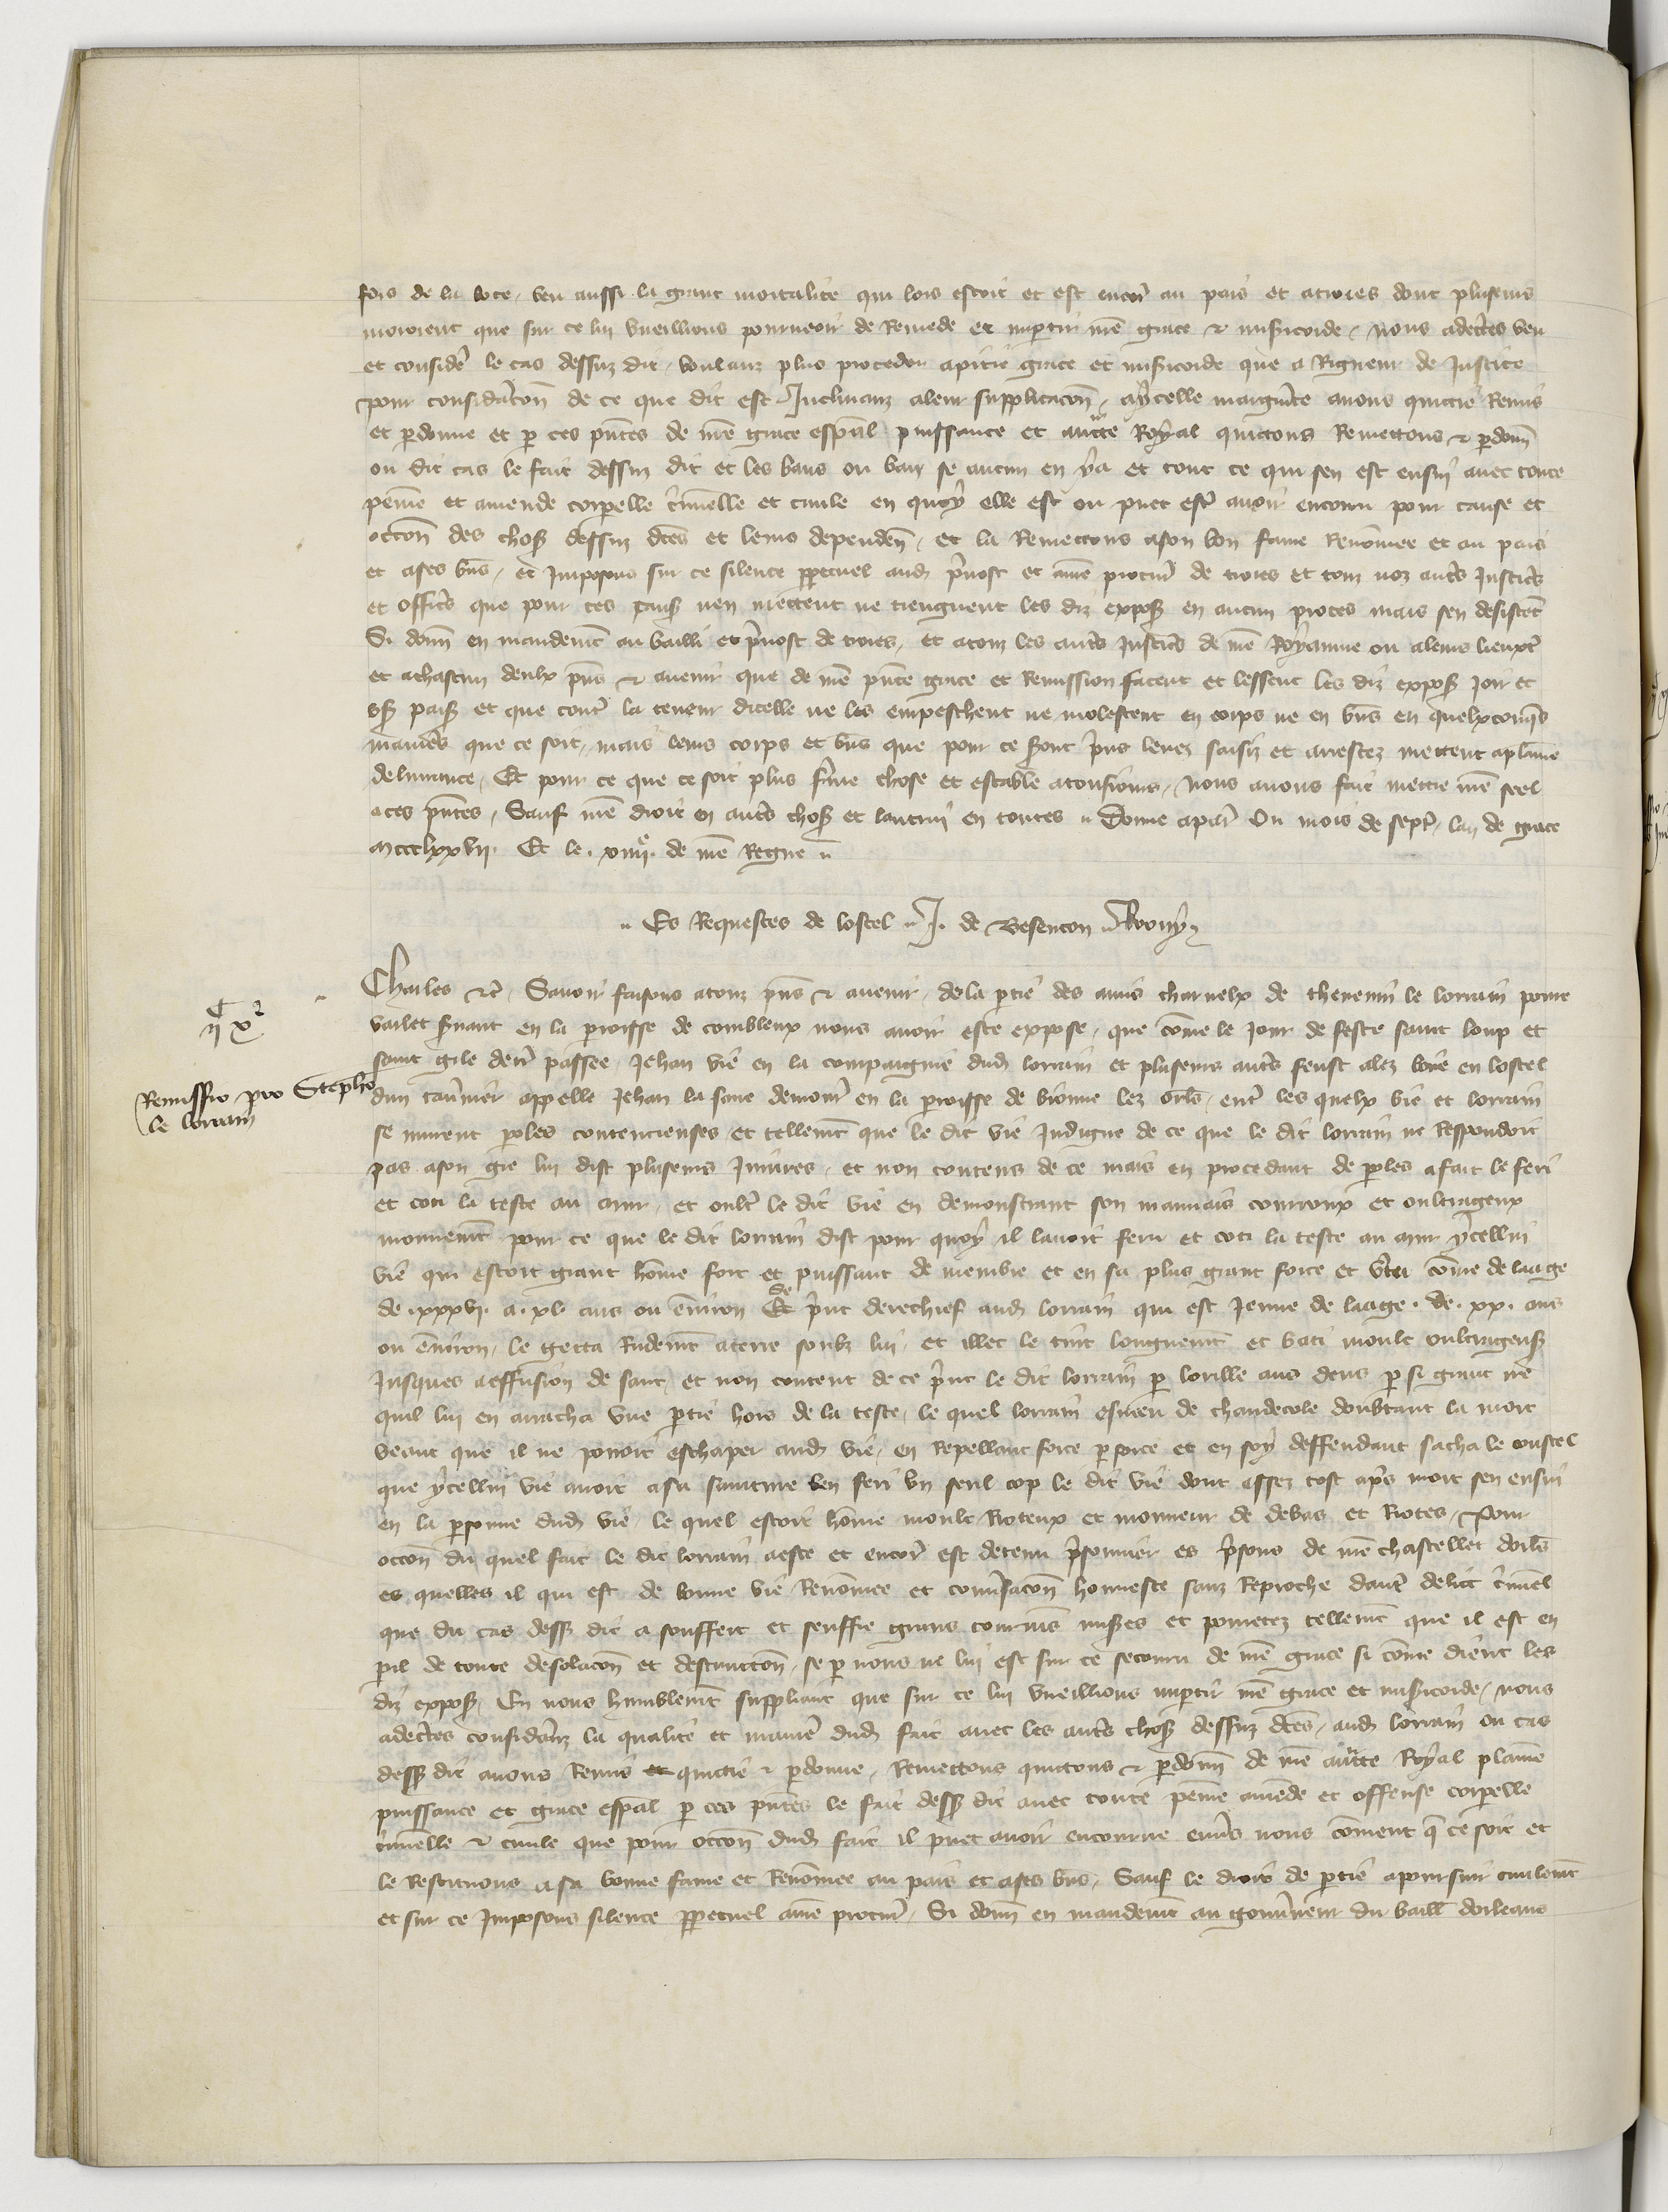 fois de la boce, veu aussi la grant mortalite qui lors estoit et est encor̃ au pais et a troies dont plusieurs
moroient que sur ce lui vueillions pourveoir de remede et impartir nr̃e grace & misericorde, nous adcc̃tes veu
et consider̃ le cas dessuz dit, voulanz plus proceder a pitie grace et misericorde que a Rigueur de Justice
pour considãcon de ce que dit est Inclinanz a leur supplicacõn, aycelle marguer̃ite avons quictie Remis
et p̱donne et p̱ ces pñtes de nr̃e grace esp̃al puissance et auctte Royal quictons Remettons & p̱donñ
ou dit cas le fait dessuz dit et les bans ou ban se aucun en ya et tout ce qui sen est ensui avec toute
peine et amende corp̱elle crimielle et civile en quoy elle est ou puet estr̃ avoir encouru pour cause et
occõn des chos̃ dessuz dc̃es et leurs dependen̄, et la Remettons a son bon fame Renom̃ee et au pais
et a ses biẽs, et Imposons sur ce silence pp̱etuel aud̃ p̱vost et a nr̃e procur̃ de troies et tous noz autr̃s Justicĩs
et officĩs que pour ces caus̃ nen mettent ne tiengnent les diz expos̃ en aucun proces mais sen desistent
Si donñ en mandem̃t au bailli et p̱vost de troies, et a touz les autr̃s Justicĩs de nr̃e Royaume ou a leurs lieuxt̃
et a chascun deulx p̃ns & avenir que de nr̃e pñte grace et Remission facent et lessent les diz expos̃ Joir et
us̃ pais̃ et que contr̃ la teneur dicelle ne les empeschent ne molestent en corps ne en biẽs en quelxconq̃s
manier̃s que ce soit, mais leurs corps et biẽs que pour ce s̃ont p̱ris levez saisiz et arrestez mettent a plaine
delivrance, Et pour ce que ce soit plus ferme chose et estable a tousiours, Nous avons fait mettre nr̃e seel
a ces pñtes, Sauf nr̃e droit en autr̃s chos̃ et lautrui en toutes . Donne a par̃ Ou mois de sept̃, lan de grace
mccclxxvij. Et le . xiiije. de nr̃e Regne .
. Es Requestes de lostel . J. de Besencon .
Charles &c̃, Savoir faisons a touz p̃ns & avenir, de la p̱tie des amis charnelx de thevenin le lorrain povre
varlet s̃vant en la p̱oisse de combleux nous avoir este expose, que cõme le Jour de feste saint loup et
saint gile derr̃ passee, Jehan vie en la compaignie dud̃ lorrain et plusieurs autr̃s feust alez boire en lostel
dun tav̄nier appelle Jehan la save demour̃ en la p̱oisse de bionne lez orl̃s, entr̃ les quelx vie et lorrain
se murent p̱oles contencieuses, et tellem̃t que le dit vie Indigne de ce que le dit lorrain ne Respondoit
pas a son gre lui dist plusieurs Injures, et non contens de ce mais en procedant de p̱oles a fait le feri
et coti la teste au mur, et oultr̃ le dit vie en demonstrant son mauvais courroux et oultrageux
mouvem̃t pour ce que le dit lorrain dist pour quoy il lavoit feru et coti la teste au mur ycellui
vie qui estoit grant hõme fort et puissant de membre et en sa plus grant force et v̄tu cõme de laage
de . xxxvj. a . xl. ans ou environ Et Se p̱rint derechief aud̃ lorrain qui est Jeune de laage . de . xx. ans
ou environ, le getta Rudem̃t a terre soubz lui, et illec le tint longuem̃t et bati moult oultrageus̃
Jusques a effusion de sanc, et non content de ce p̱rint le dit lorrain p̱ lorille aus dens p̱ si grant ire
quil lui en arracha une p̱tie hors de la teste, le quel lorrain esmeu de chaudecole doubtant la mort
veant que il ne povoit eschaper aud̃ vie, en Repellant force p̱ force et en soy deffendant sacha le coustel
que ycellui vie avoit a sa sainture len feri un seul cop le dit vie dont assez tost apr̃s mort sen ensui
en la p̱sonne dud̃ vie, le quel estoit hõme moult Rioteux et mouveur de debas et Riotes, Pour
occõn du quel fait le dit lorrain a este et encor̃ est detenu p̱sonnier es p̱sons de nr̃e chastellet dorl̃s
es quelles il qui est de bonne vie Renom̃ee et conv̄sacõn honneste sanz Reproche dautr̃ delict crimiel
que du cas dess̃ dit a souffert et seuffre grans tourmẽs mis̃es et povretez tellem̃t que il est en
p̱il de toute desolacõn et destruccõn, se p̱ nous ne lui est sur ce secouru de nr̃e grace si cõme dient les
diz expos̃, En nous humblem̃t suppliant que sur ce lui vueillions imp̱tir nr̃e grace et mis̃icorde, nous
adcc̃tes considr̃anz la qualite et manier̃ dud̃ fait avec les autr̃s chos̃ dessuz dc̃es, aud̃ lorrain ou cas
dess̃ dit avons Remis et quictie & p̱donne, Remettons quictons & p̱donñ de nr̃e auctte Royal plaine
puissance et grace esp̃al p̱ ces pñtes le fait dess̃ dit avec toute peine amende et offense corp̱elle
crimielle & civile que pour occõn dud̃ fait il puet avoir encourue env̄s nous cõment q̃ ce soit et
le Restituons a sa bonne fame et Renom̃ee au pais et a ses biẽs, Sauf le droit de p̱tie a poursuir civilem̃t
et sur ce Imposons silence pp̱etuel a nr̃e procur̃, Si donñ en mandem̃t au gouv̄neur du baill̃ dorleans
Remissio pro Stepho
le lorrain